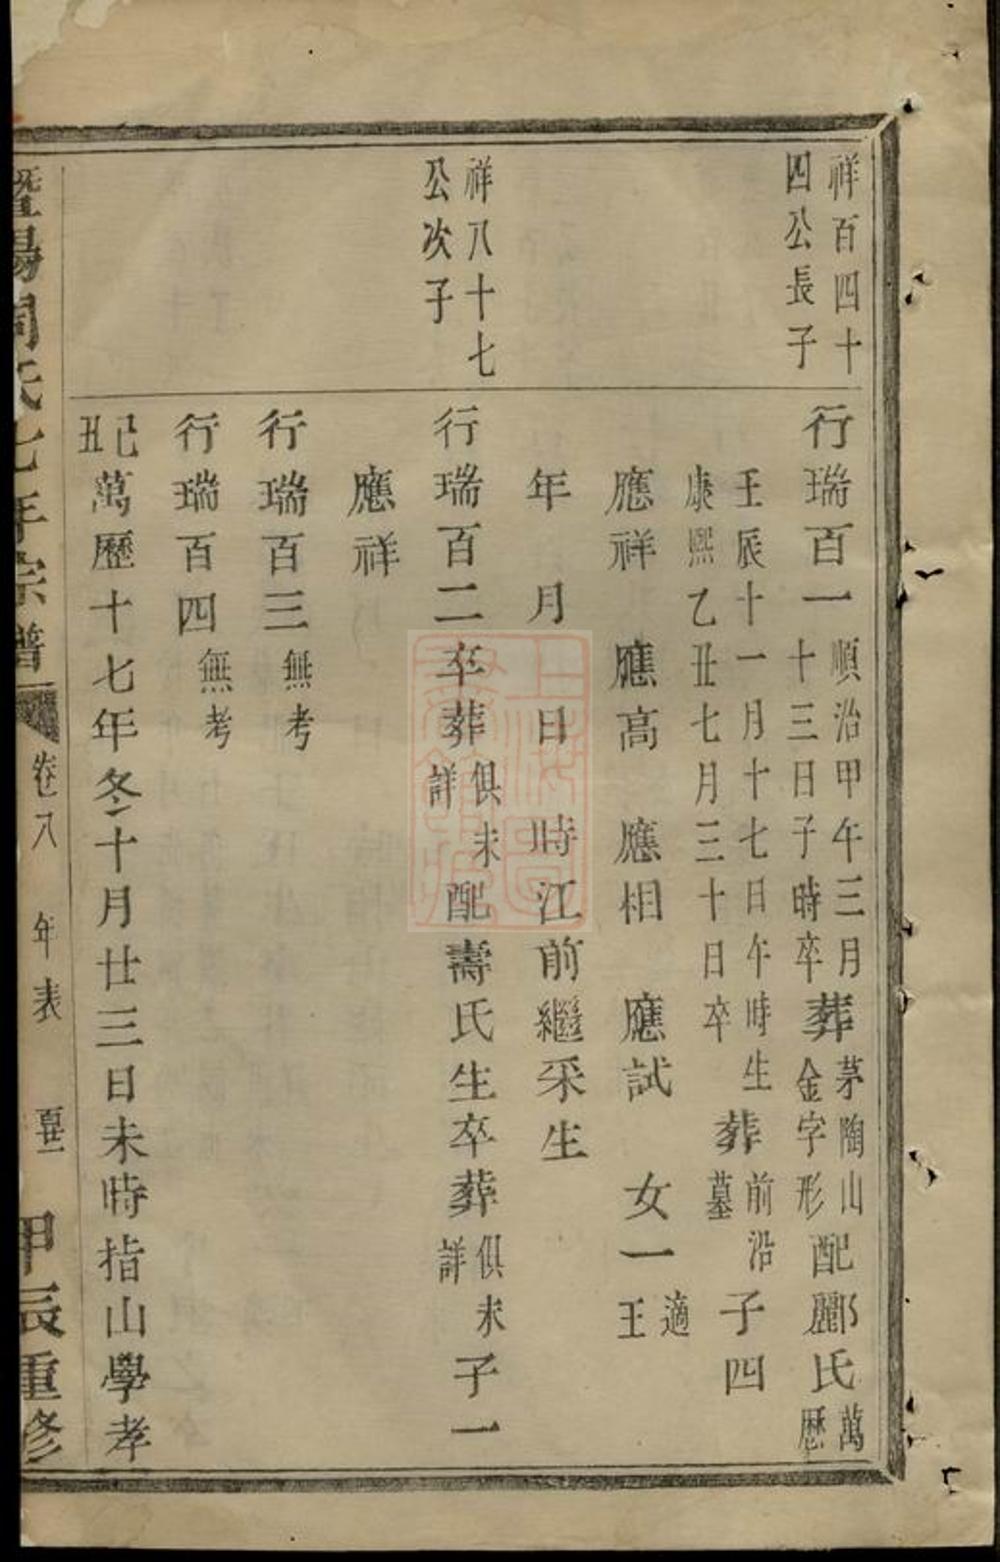 祥百四十
四公長子
行瑞百一
順治甲午三月
十三日子時卒
葬
茅陶山
金字形
配酈氏
萬
歷
壬辰十一月十七日午時生
康熙乙丑七月三十日卒
葬
前沿
墓
子四
應祥 應高 應相 應試 女一
適
王
年 月 日 時江前繼采生
祥八十七
公次子
行瑞百二卒葬
俱未
詳
配壽氏生卒葬
俱未
詳
子一
應祥
行瑞百三
無考
行瑞百四
無考
己
丑
萬歷十七年冬十月廿三日未時指山學孝
暨陽周氏七年宗譜 卷八 年表 甲辰重修